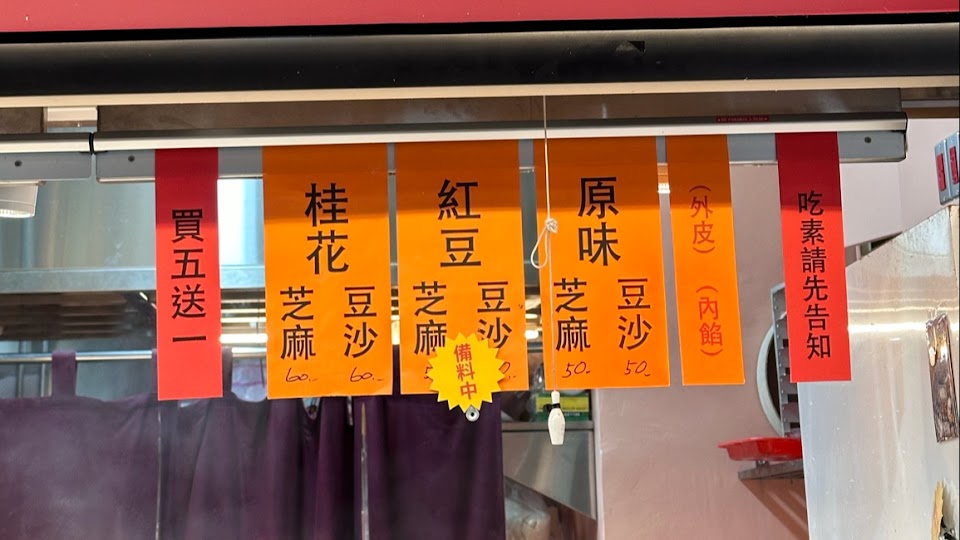 吃素請先告知
（外皮）（內餡）
原味
豆沙
50.-
芝麻
50.-
紅豆
豆沙
芝麻
備料中
桂花
豆沙
60.-
芝麻
60.-
買五送一